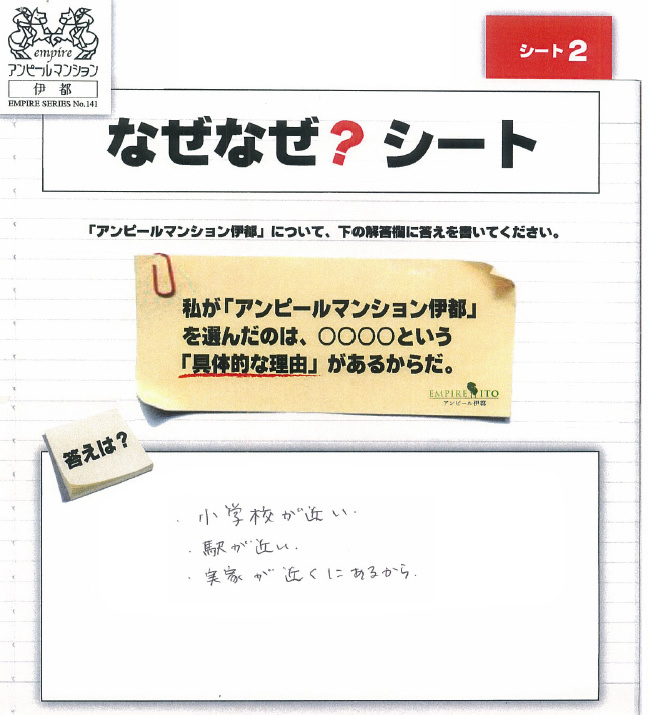 empire
アンピールマンション
伊都
EMPIRE SERIES No.141
シート2
なぜなぜ?シート
「アンピールマンション伊都」について、下の解答欄に答えを書いてください。
私が「アンピールマンション伊都」
を選んだのは、○○○○という
「具体的な理由」があるからだ。
EMPIRE ITO
アンピール伊都
答えは?
・小学校が近い.
・駅が近い.
・実家が近くにあるから.